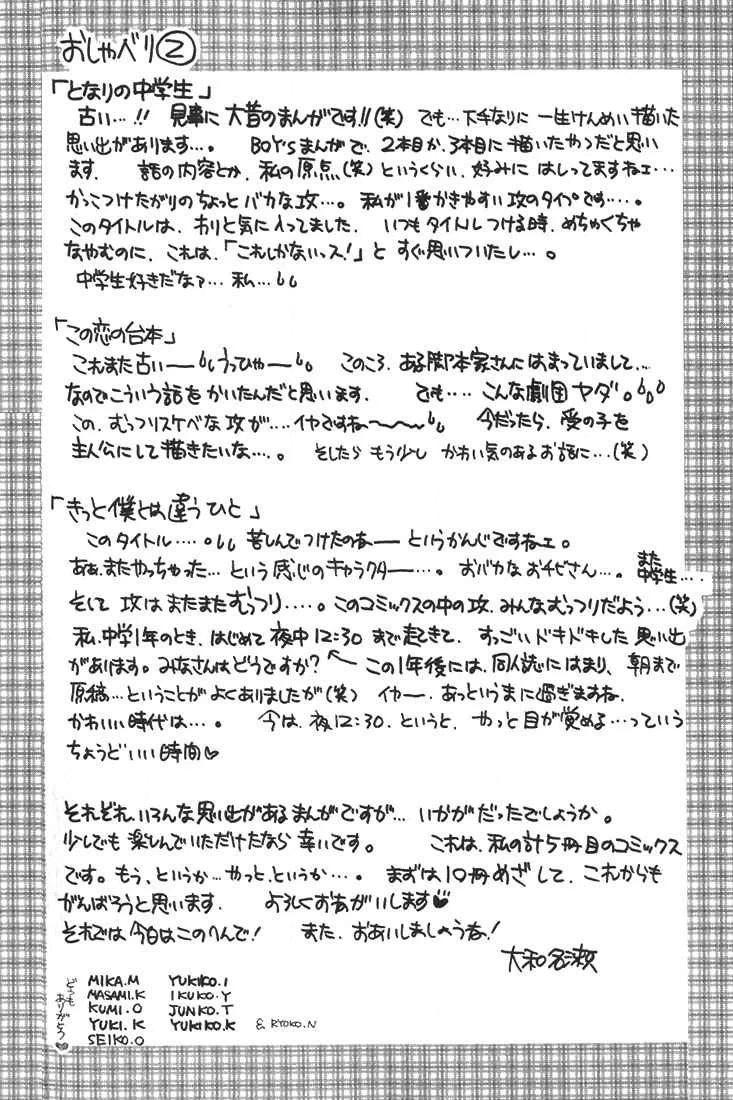 おしゃべり②
「となりの中学生」
古い…!! 見事に大昔のまんがです!!(笑) でも…下手なりに 一生けんめい描いた
思い出があります…。 BOY'Sまんがで、2本目か、3本目に描いたやつだと思い
ます. 話の内容とか、私の原点(笑)というくらい、好みに はしってますねェ…
かっこつけたがりのちょっとバカな攻…。 私が1番かきやすい攻のタイプです…。
このタイトルは、わりと気に入ってました. いつもタイトルつける時、めちゃくちゃ
なやむのに、これは、「これしかないっス!」と すぐ思いついたし…。
中学生好きだなァ…私…
「この恋の台本」
これまた古いー うっひゃー このころ、ある脚本家さんにはまっていまして…
なのでこういう話をかいたんだと思います. でも…こんな劇団ヤダ。
この、むっつりスケベな攻が…イヤですね〜 今だったら、受の子を
主人公にして描きたいな…。 そしたら もう少し かわい気のあるお話に…(笑)
「きっと僕とは違うひと」
このタイトル…。 苦しんでつけたのねー というかんじですねェ。
ああ、またやっちゃった…という感じのキャラクター…。 おバカなおチビさん…。 また
中学生…
そして 攻はまたまたむっつり…。このコミックスの中の攻、みんなむっつりだよう…(笑)
私、中学1年のとき、はじめて夜中12:30まで起きてて、すっごいドキドキした思い出
があります。みなさんはどうですか? ← この1年後には、同人誌にはまり、朝まで
原稿…ということがよくありましたが(笑) イヤー、あっというまに過ぎますね、
かわいい時代は…。 今は、夜12:30、というと、やっと目が覚める…っていう
ちょうどいい時間♡
それぞれ、いろんな思い出があるまんがですが… いかがだったでしょうか。
少しでも楽しんでいただけたなら幸いです。 これは、私の計5冊目のコミックス
です。もう、というか…やっと、というか…。 まずは10冊めざして、これからも
がんばろうと思います. よろしくおねがいします♥
それでは今日はこのへんで! また、おあいしましょうね!
大和名瀬
どうも
ありがとう♥
MIKA.M YUKIKO.I
MASAMI.K IKUKO.Y
KUMI.O JUNKO.T
YUKI.K YUKIKO.K & RYOKO.N
SEIKO.O